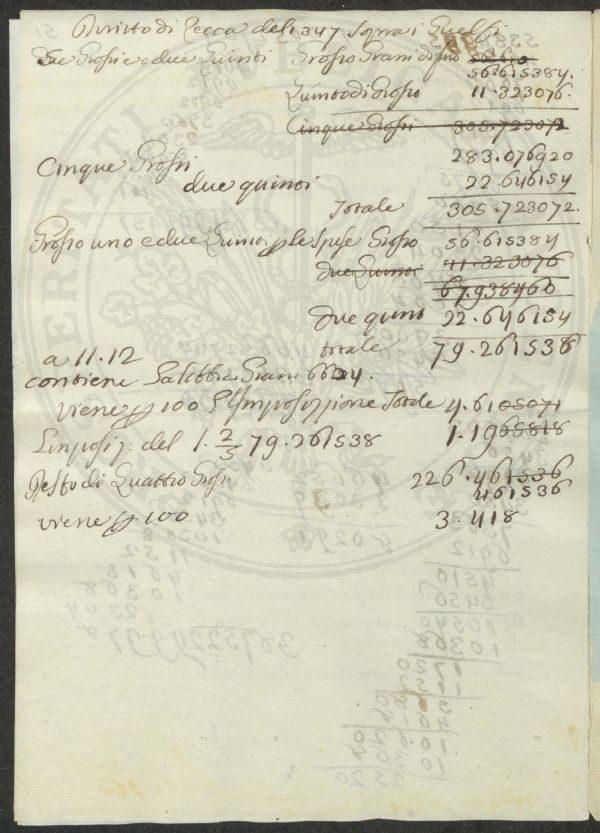 Diritto di Zecca del 1347 sopra i Guelfi
Grossi e due Quinti Grosso Grani di fino 56.615
56.615384.
Quinto di Grosso 11.323076.
Cinque Grossi 305.723072
283.076920
Cinque Grossi
due quinti 22.646154
Totale 305.723072.
Grosso uno e due Quinti p le spese Grosso 56.615384
due Quinti 11.323076
67.938460
due quint 22.646154
totale 79.261538
a 11.12
contiene La Libbra Grani 6634.
viene p 100 L'Imposizzione Totale 4.6105071
L'imposiz: del 1.2/5 79.261538 1.1965818
Resto di Quattro Grossi 226.461536
461536
viene p 100 3.418